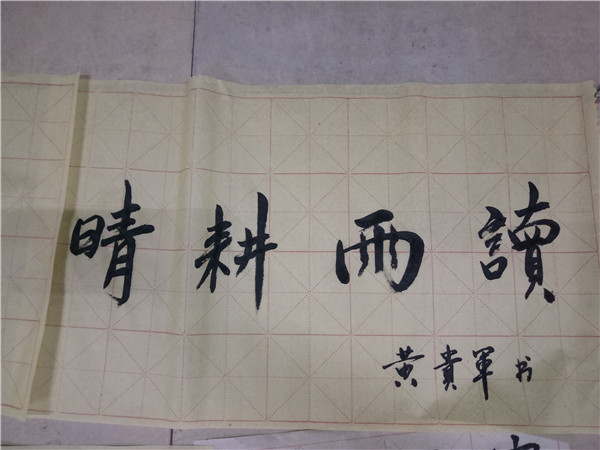 晴耕雨讀
黄貴軍书